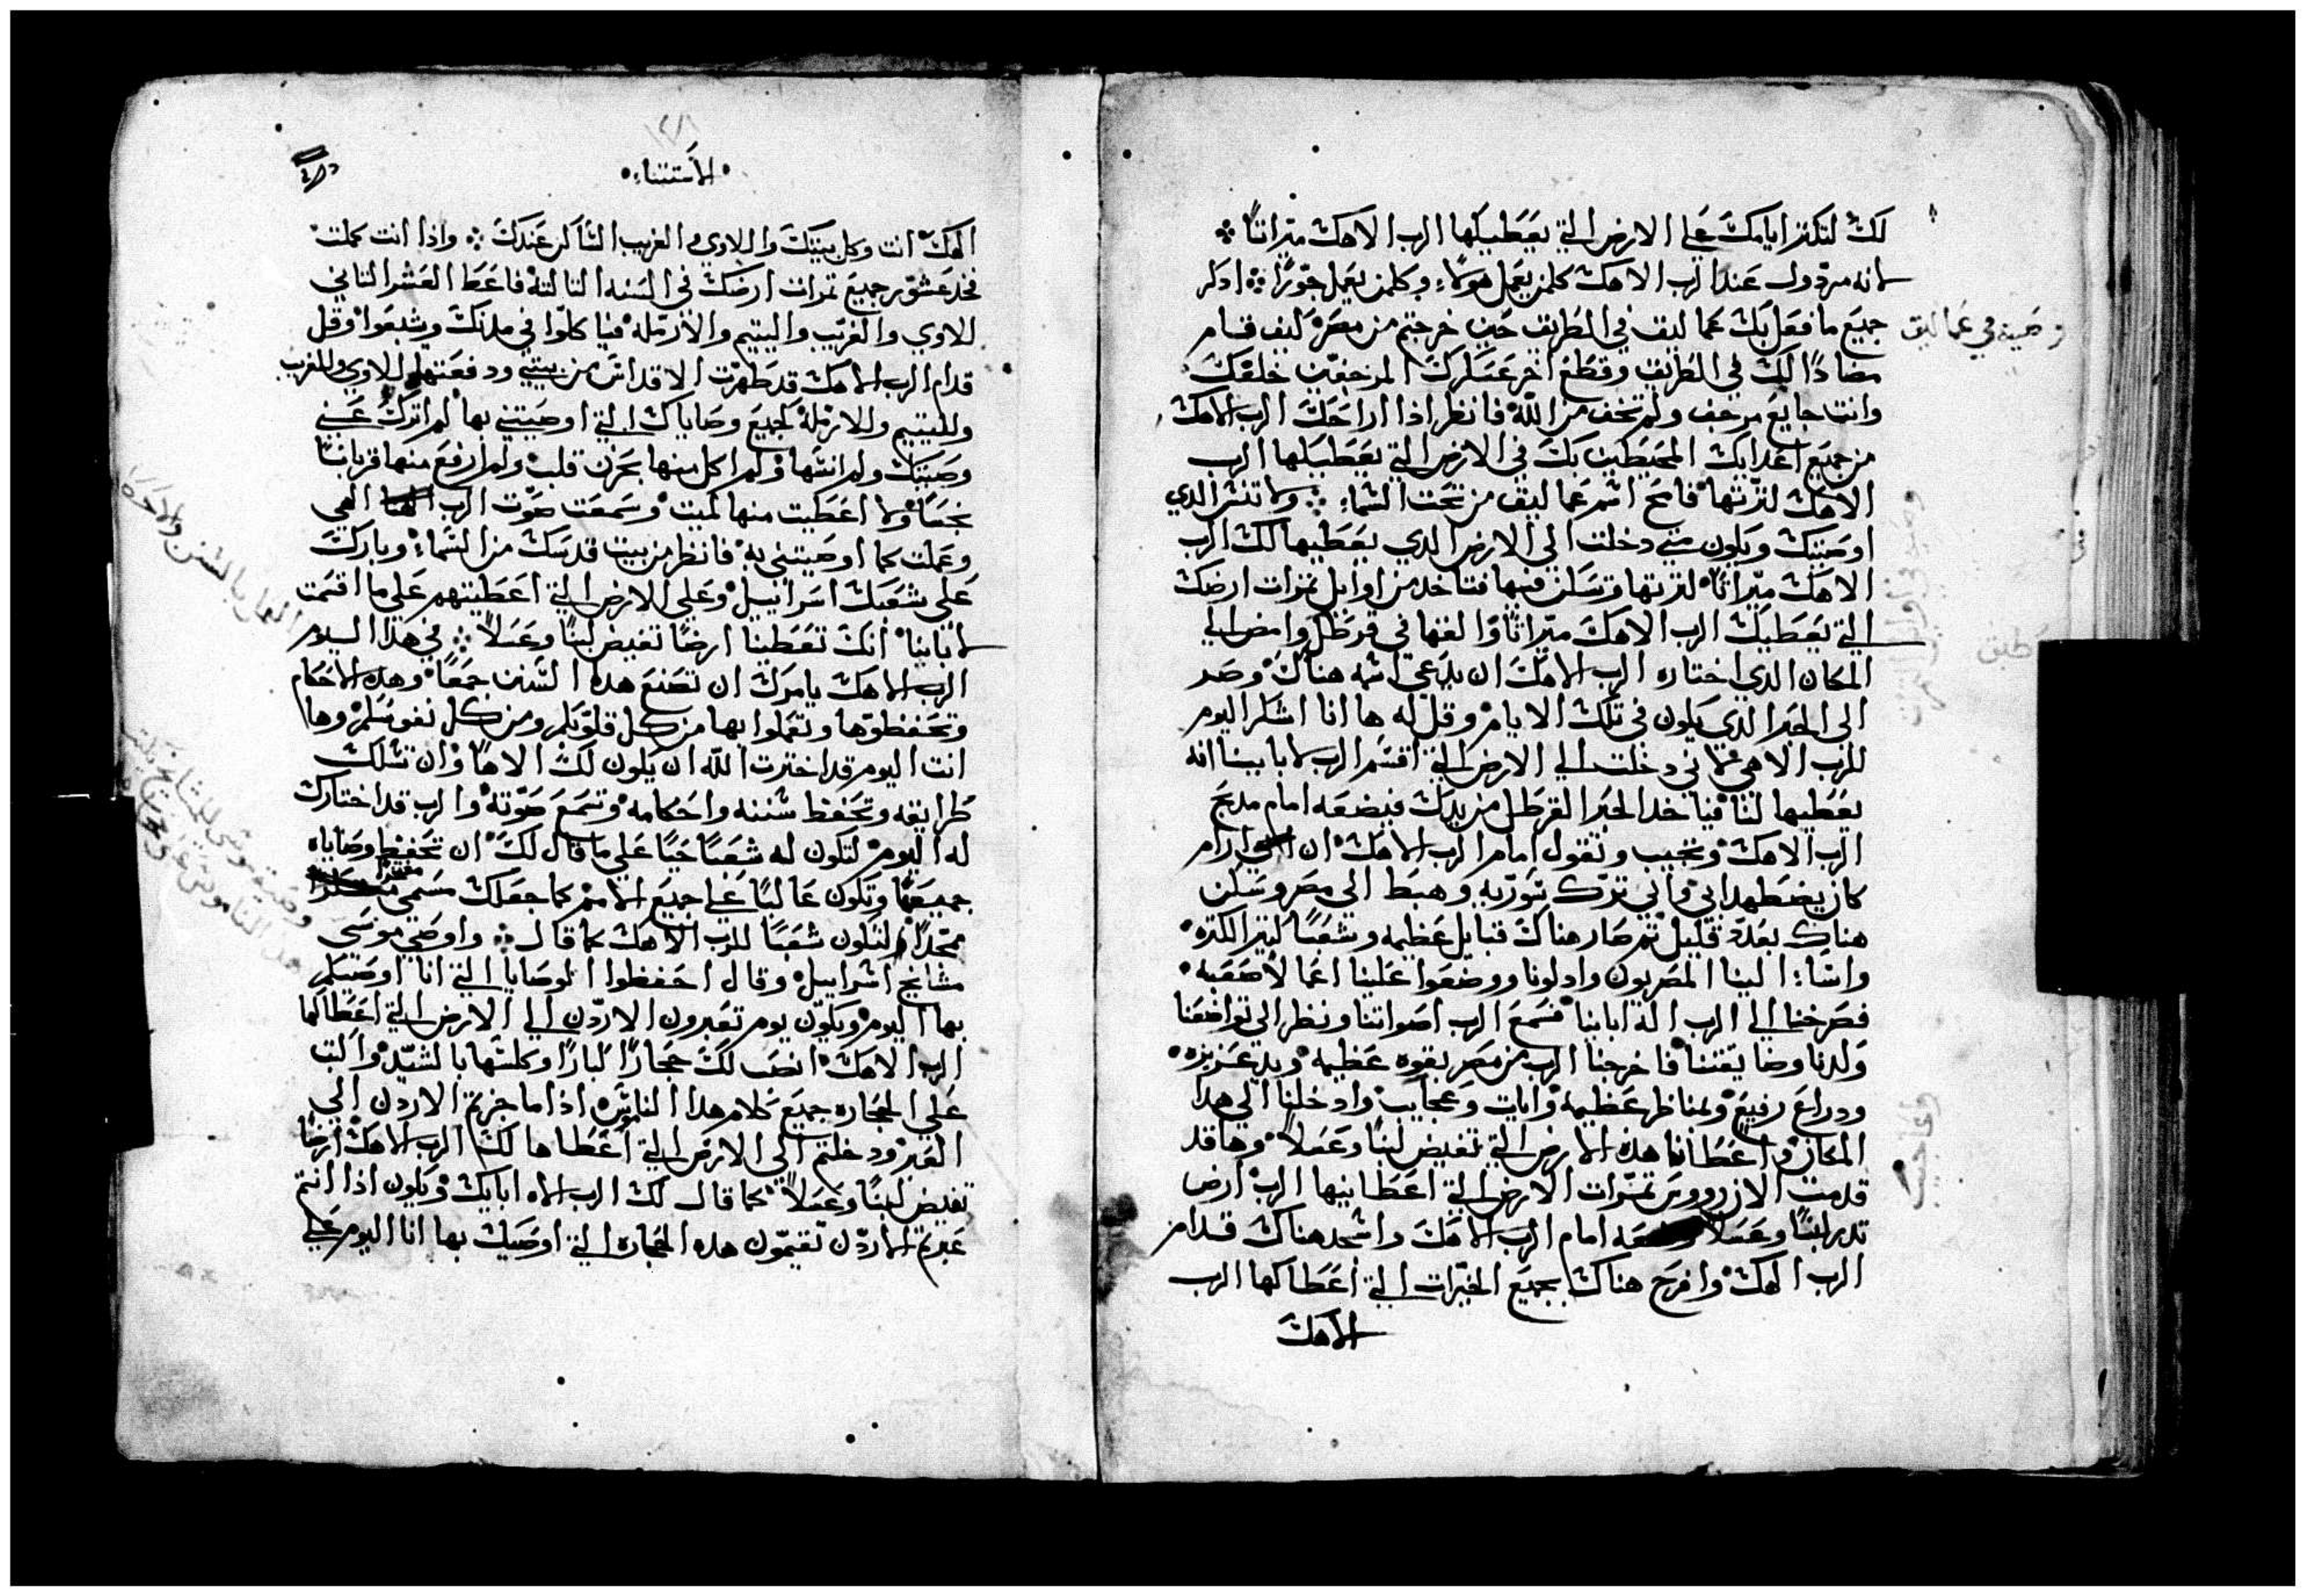 لك لتكثر ايامك على الارض التي يعطيكها الرب الاهك ميراثاً
لانه مردول عند الرب الاهك كلمن يعمل هولاء وكلمن يعمل جوراً اذكر
وصية في عماليق
جميع ما فعل بك عماليق في الطريق حين خرجتم من مصر كيف قام
مضاداً لك في الطريق وقطع اخر عسكرك المزحفين خلفك
وانت جايع مرجف ولم تخف من الله فانظر اذا اراحك الرب الاهك
من جميع اعدايك المحيطين بك في الارض التي يعطيكها الرب
الاهك لترتها فامح اسم عماليق من تحت السماء ولا تنس الدي
اوصيتك ويكون متي دخلت الي الارض الدي يعطيها لك الرب
الاهك ميراثاً لترتها وتسكن فيها فتاخد من اوايل تمرات ارضك
التي يعطيك الرب الاهك ميراثاً والقها في قرطل وامض الي
المكان الدي اختاره الرب الاهك ان يدعي اسمه هناك وصر
الى الحبر الدي يكون في تلك الايام وقل له ها انا اشكر اليوم
للرب الاهي لاني دخلت الي الارض التي اقسم الرب لابايينا انه
يعطيها لنا فياخد الحبر القرطل من يدك فيضعه امام مدبح
الرب الاهك وتجيب وتقول امام الرب الاهك ان ارام
كان يضطهد ابي وابي ترك سورية وهبط الي مصر وسكن
هناك بعدد قليل تم صار هناك قبايل عظيمه وشعباً كتير الكتره
واساء الينا المصريون وادلونا ووضعوا علينا اعمالاً صعبه
فصرخنا الي الرب اله ابايينا فسمع الرب اصواتنا ونظر الي تواضعنا
وكدنا وضايقتنا فاخرجنا الرب من مصر بقوه عظيمه وبيد عزيزه
ودراع رفيع ولمناظر عظيمة وايات وعجايب وادخلنا الي هدا
المكان واعطانا هذه الارض التي تفيض لبناً وعسلاً وها قد
قدمت الان رووس تمرات الارض التي اعطانيها الرب ارض
تدر لبناً وعسلاً امام الرب الاهك واسجد هناك قدام
الرب الهك وافرح هناك بجميع الخيرات التي اعطاكها الرب
الاهك
الاستثناء
الهك انت وكل بيتك واللاوي والغريب الساكن عندك واذا انت كملت
فخد عشور جميع تمرات ارضك في السنه التالتة فاعط العشر التاني
للاوي والغريب واليتيم والارمله فياكلوا في مدنك ويشبعوا وقل
قدام الرب الاهك قد طهرت الاقداس من بيتي ودفعتها للاوي وللغريب
ولليتيم وللارملة كجميع وصاياك التي اوصيتني بها لم اترك عني
وصيتك ولم انسها ولم اكل منها بحزن قلب ولم ارفع منها قرباناً
نجساً ولا اعطيت منها لميت وسمعت صوت الرب الهي
وعملت كما اوصيتني به فانظر من بيت قدسك من السماء وبارك
على شعبك اسراييل وعلي الارض التي اعطيتهم علي ما اقسمت
لابايينا انك تعطينا ارضاً تفيض لبناً وعسلاً في هدا اليوم
الرب الاهك يامرك ان تصنع هده السنن جمعاً وهده الاحكام
وتحفظوها وتعملوا بها من كل قلوبكم ومن كل نفوسكم وها
انت اليوم قد اخترت الله ان يكون لك الاهاً وان تسلك
طرايقه وتحفظ سننه واحكامه وتسمع صوته والرب قد اختارك
له اليوم لتكون له شعباً حياً علي ما قال لك ان تحفظ وصاياه
جميعها وتكون عالياً علي جميع الامم كما جعلك مسمي
ممجداً لتكون شعباً للرب الاهك كما قال واوصي موسى
مشايخ اسراييل وقال احفظوا الوصايا التي انا اوصيكم
بها اليوم ويكون يوم تعبرون الاردن الي الارض التي اعطاكها
الرب الاهك انصب لك حجاراً كباراً وكلسها بالشيد واكتب
علي الحجاره جميع كلام هدا الناموس اذا ما جزتم الاردن الي
العبر ودخلتم الي الارض التي اعطاها لك الرب الاهك ارضاً
تفيض لبناً وعسلاً كما قال لك الرب الاه ابايك ويكون اذا انتم
عبرتم الاردن تقيمون هده الحجاره التي اوصيك بها انا اليوم علي